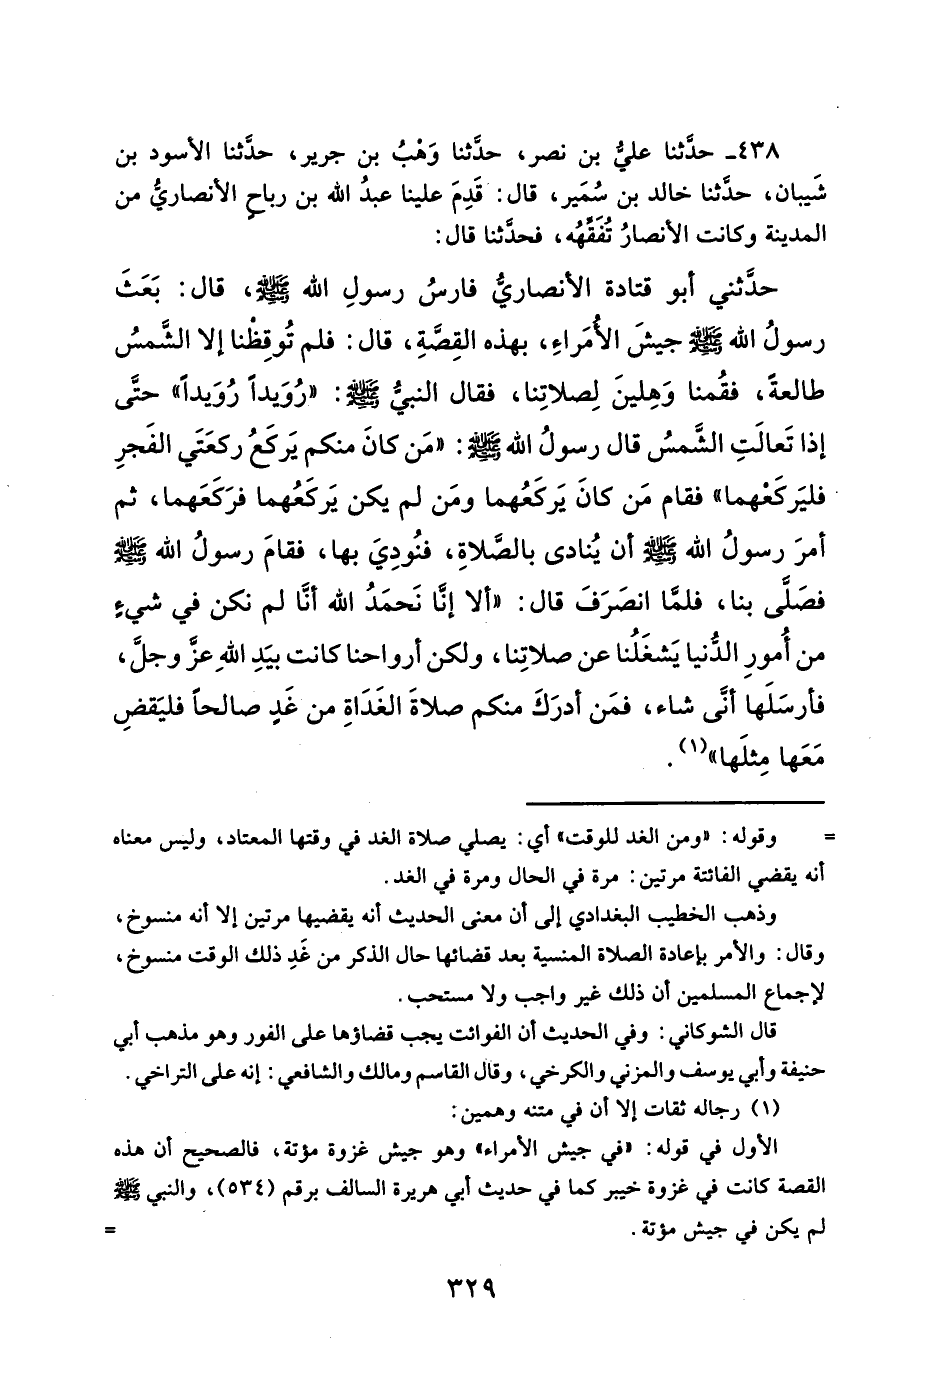 ٤٣٨ـ حدَّثنا عليُّ بن نصر، حدَّثنا وَهْبُ بن جرير، حدَّثنا الأسود بن
شَيبان، حدَّثنا خالد بن سُمَير، قال: قَدِمَ علينا عبدُ الله بن رباحٍ الأنصاريُّ من
المدينة وكانت الأنصارُ تُفَقِّهُه، فحدَّثنا قال:
حدَّثني أبو قتادة الأنصاريُّ فارسُ رسولِ الله ﷺ، قال: بَعَثَ
رسولُ الله ﷺ جيشَ الأُمَراءِ، بهذه القِصَّةِ، قال: فلم تُوقِظْنا إلا الشَّمسُ
طالعةً، فقُمنا وَهِلينَ لِصلاتِنا، فقال النبيُّ ﷺ: «رُوَيداً رُوَيداً» حتَّى
إذا تَعالَتِ الشَّمسُ قال رسولُ الله ﷺ: «مَن كانَ منكم يَركَعُ ركعَتَي الفَجرِ
فليَركَعْهما» فقام مَن كانَ يَركَعُهما ومَن لم يكن يَركَعُهما فرَكَعَهما، ثم
أمرَ رسولُ الله ﷺ أن يُنادى بالصَّلاةِ، فنُودِيَ بها، فقامَ رسولُ الله ﷺ
فصَلَّى بنا، فلمَّا انصَرَفَ قال: «ألا إنَّا نَحمَدُ الله أنَّا لم نكن في شيءٍ
من أُمورِ الدُّنيا يَشغَلُنا عن صلاتِنا، ولكن أرواحنا كانت بيَدِ اللهِ عزَّ وجلَّ،
فأرسَلَها أنَّى شاء، فمَن أدرَكَ منكم صلاةَ الغَدَاةِ من غَدٍ صالحاً فليَقضِ
مَعَها مِثلَها»(١).
= وقوله: «ومن الغد للوقت» أي: يصلي صلاة الغد في وقتها المعتاد، وليس معناه
أنه يقضي الفائتة مرتين: مرة في الحال ومرة في الغد.
وذهب الخطيب البغدادي إلى أن معنى الحديث أنه يقضيها مرتين إلا أنه منسوخ،
وقال: والأمر بإعادة الصلاة المنسية بعد قضائها حال الذكر من غَدِ ذلك الوقت منسوخ،
لإجماع المسلمين أن ذلك غير واجب ولا مستحب.
قال الشوكاني: وفي الحديث أن الفوائت يجب قضاؤها على الفور وهو مذهب أبي
حنيفة وأبي يوسف والمزني والكرخي، وقال القاسم ومالك والشافعي: إنه على التراخي.
(١) رجاله ثقات إلا أن في متنه وهمين:
الأول في قوله: «في جيش الأمراء» وهو جيش غزوة مؤتة، فالصحيح أن هذه
القصة كانت في غزوة خيبر كما في حديث أبي هريرة السالف برقم (٥٣٤)، والنبي ﷺ
لم يكن في جيش مؤتة. =
٣٢٩